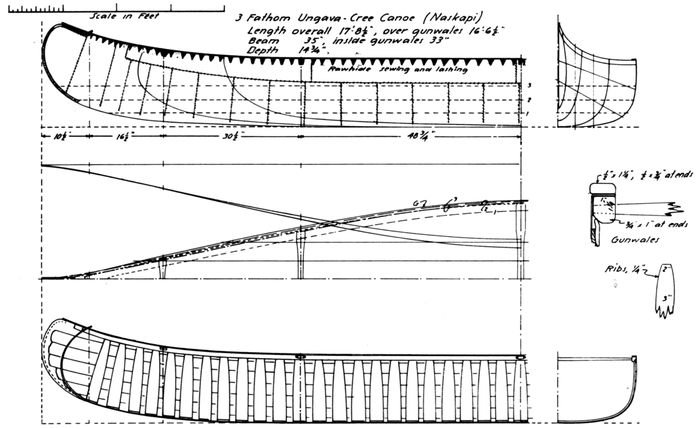 Scale in Feet
3 Fathom Ungava-Cree Canoe (Naskapi)
Length overall 17'8½", over gunwales 16'6½"
Beam 35", inside gunwales 33"
Depth 14¾"
Rawhide sewing and lashing
3
2
1
10½" 16½" 30½" 48¾"
½" x 1¼", ½ x ¾" at ends
¾ x 1" at ends
Gunwales
Ribs, ¼"
2"
3"